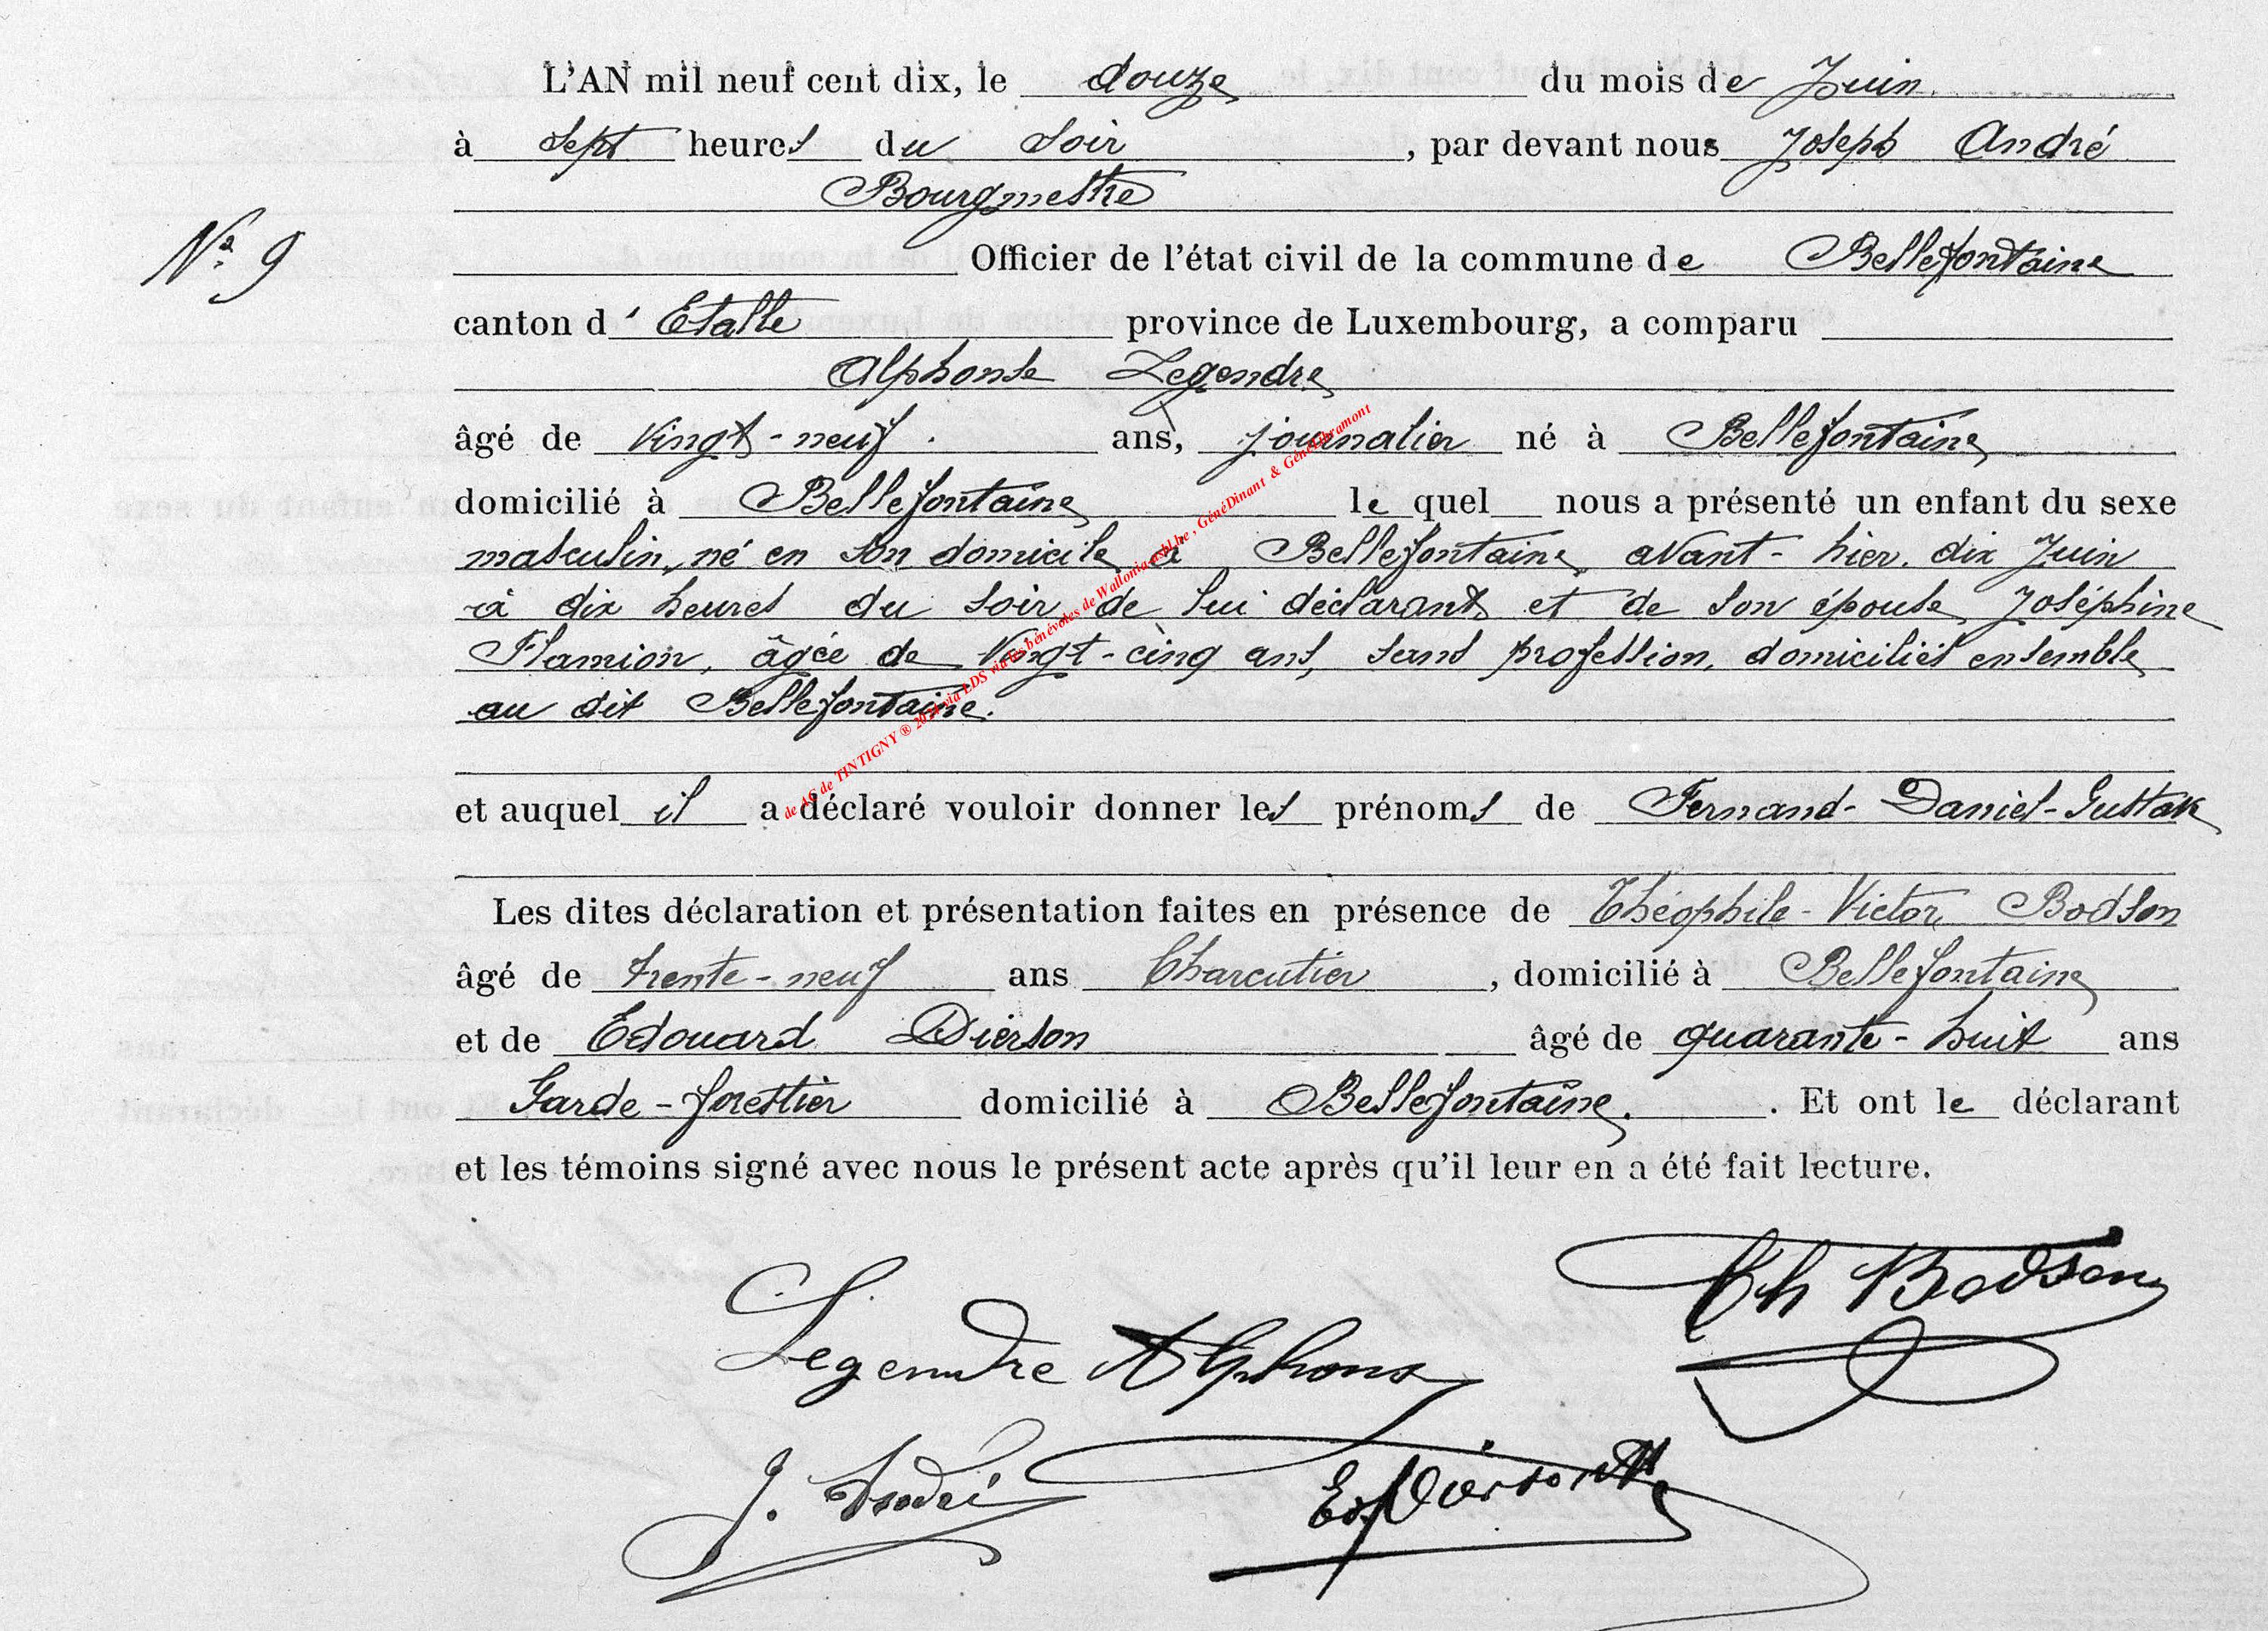 L'AN mil neuf cent dix, le douze du mois de Juin
à sept heures du soir, par devant nous Joseph André
Bourgmestre
Nº 9
Officier de l'état civil de la commune de Bellefontaine
canton d'Etalle province de Luxembourg, a comparu
Alphonse Legendre
âgé de vingt-neuf. ans, journalier né à Bellefontaine
domicilié à Bellefontaine lequel nous a présenté un enfant du sexe
masculin, né en son domicile à Bellefontaine avant-hier, dix Juin
à dix heures du soir de lui déclarant et de son épouse Joséphine
Flamion, âgée de Vingt-cinq ans, sans profession, domiciliés ensemble
au dit Bellefontaine.
de AG de TINTIGNY ® 2024 via LDS via les bénévoles de Wallonia asbl.be, GénéDinant & GénéLibramont
et auquel il a déclaré vouloir donner les prénoms de Fernand-Daniel-Gustave
Les dites déclaration et présentation faites en présence de Théophile-Victor Bodson
âgé de trente-neuf ans Charcutier, domicilié à Bellefontaine
et de Edouard Dierson âgé de quarante-huit ans
Garde-forestier domicilié à Bellefontaine. . Et ont le déclarant
et les témoins signé avec nous le présent acte après qu'il leur en a été fait lecture.
Th Bodson
Legendre Alphons
J. André
Ed Dierson